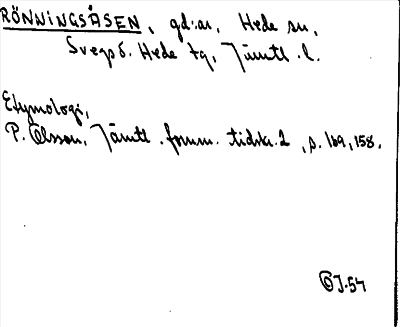 RÖNNINGSÅSEN, gd:ar, Hede sn,
Svegs d. Hede tg, Jämtl. l.
Etymologi,
P. Olsson, Jämtl. fornm. tidskr. 2, s. 169, 158.
OJ-54